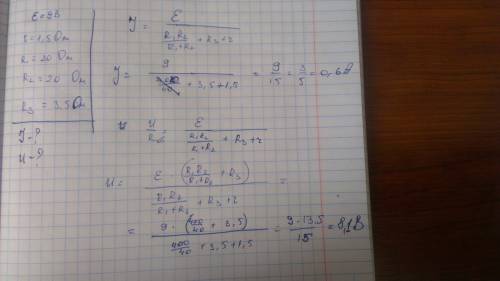 E=9В
r=1,5 Ом
R₁=20 Ом
R₂=20 Ом
R₃=3,5 Ом
J-?
U-?
J = E / (R₁R₂/(R₁+R₂) + R₃+r)
J = 9 / (/40 + 3,5+1,5) = 9/15 = 3/5 = 0,6
U/R = E / (R₁R₂/(R₁+R₂) + R₃+r)
U = E·(R₁R₂/(R₁+R₂) + R₃) / (R₁R₂/(R₁+R₂) + R₃+r) =
= 9·(400/40 + 3,5) / (400/40 + 3,5+1,5) = 9·13,5/15 = 8,1В